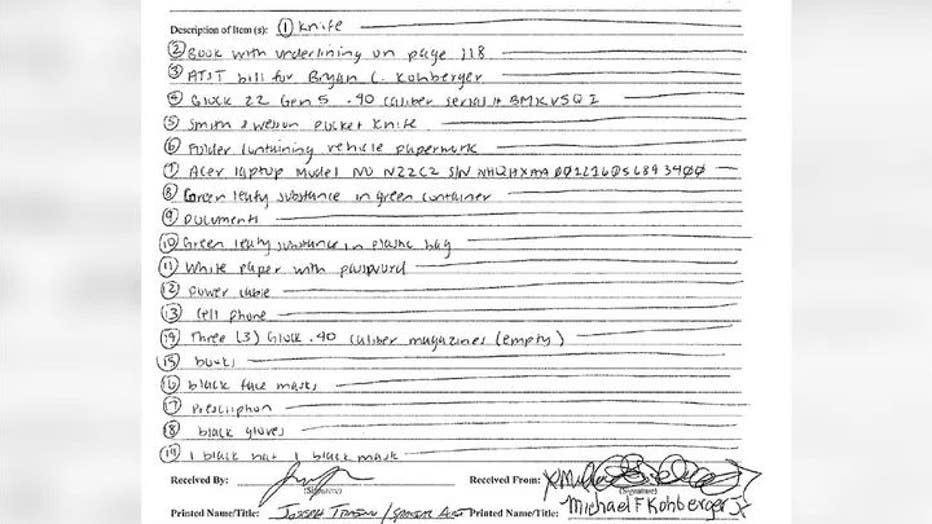 Description of Item(s): ① Knife
② Book with underlining on page 118
③ AT&T bill for Bryan C. Kohberger
④ Glock 22 Gen 5 .40 caliber serial #
⑤ Smith & Wesson pocket knife
⑥ Folder containing vehicle paperwork
⑦ Acer laptop Model NO N22C2 S/N
⑧ Green leafy substance in green container
⑨ Documents
⑩ Green leafy substance in plastic bag
⑪ White paper with password
⑫ Power cable
⑬ Cell phone
⑭ Three (3) Glock .40 caliber magazines (empty)
⑮ books
⑯ black face masks
⑰ Prescription
⑱ black gloves
⑲ 1 black hat 1 black mask
Received By: Received From:
(Signature) (Signature)
Printed Name/Title: Joseph Printed Name/Title: Michael F Kohberger Jr